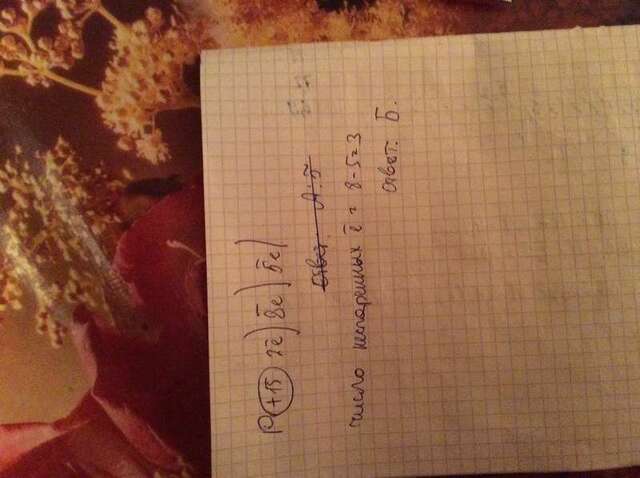 P +15 2ē) 8ē) 5ē)
Ответ: А. 5
число непаренных ē = 8-5=3
Ответ. Б.